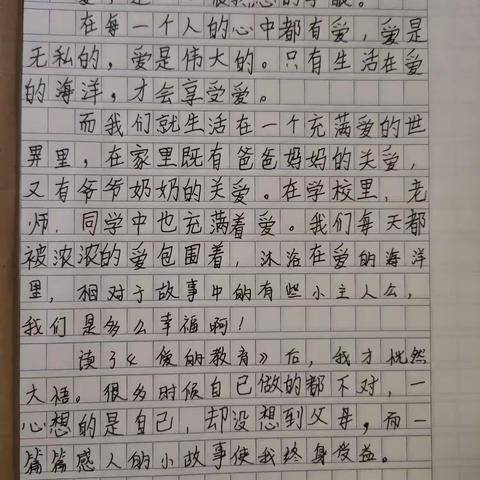 在每一个人的心中都有爱，爱是
无私的，爱是伟大的。只有生活在爱
的海洋，才会享受爱。
而我们就生活在一个充满爱的世
界里，在家里既有爸爸妈妈的关爱，
又有爷爷奶奶的关爱。在学校里，老
师，同学中也充满着爱。我们每天都
被浓浓的爱包围着，沐浴在爱的海洋
里，相对于故事中的有些小主人公，
我们是多么幸福啊！
读了《爱的教育》后，我才恍然
大悟。很多时候自己做的都不对，一
心想的是自己，却没想到父母，而一
篇篇感人的小故事使我终身受益。